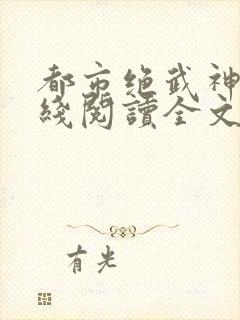 都市绝武神
綫閱讀全文
有光